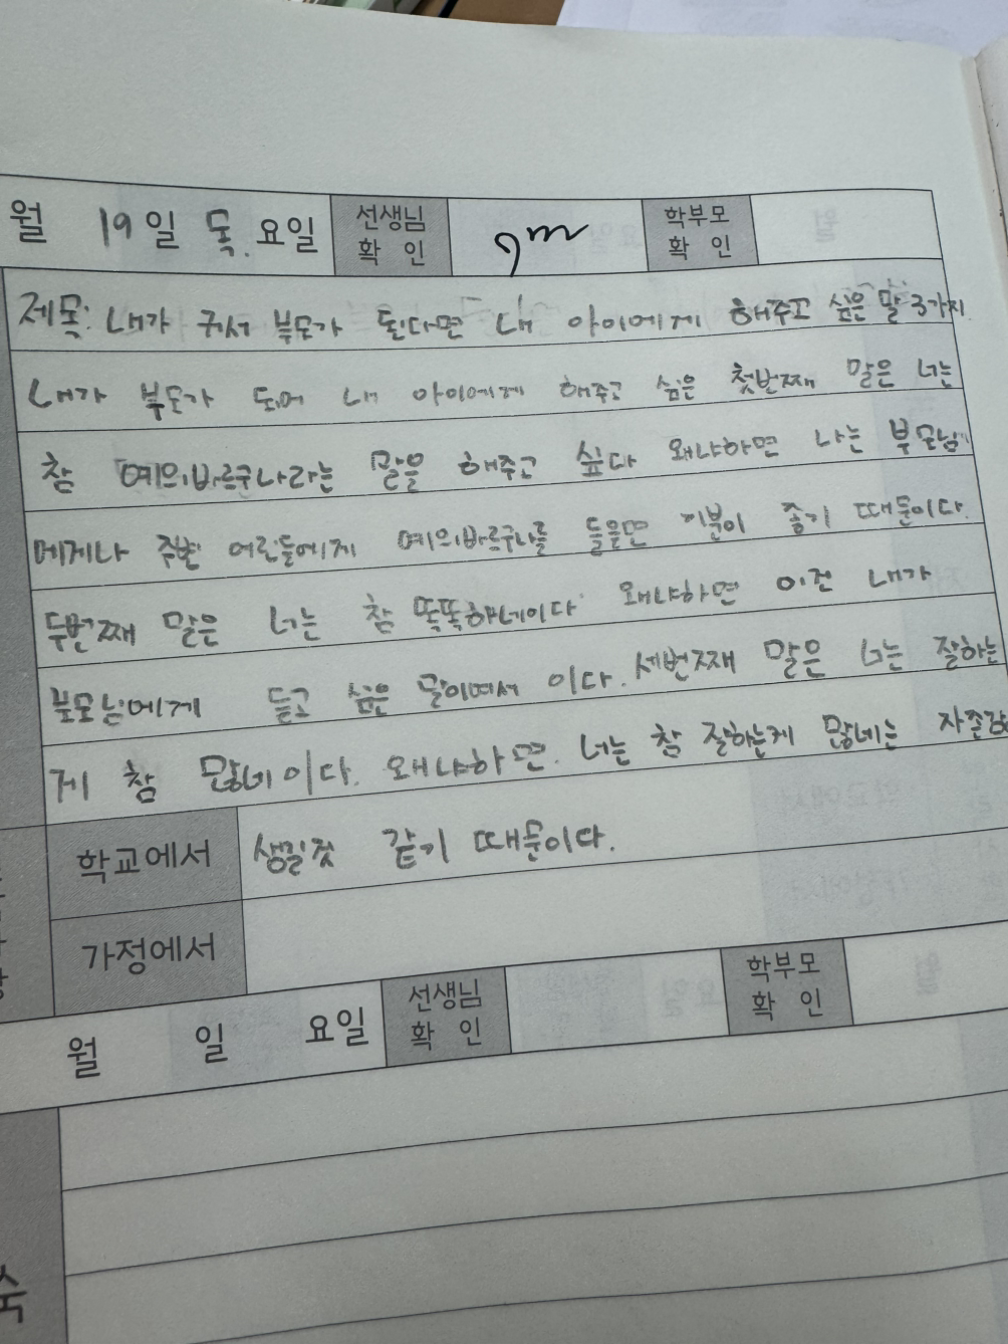 월 19일 목.요일 선생님 확 인 학부모 확 인
제목: 내가 커서 부모가 된다면 내 아이에게 해주고 싶은 말 3가지
내가 부모가 되어 내 아이에게 해주고 싶은 첫번째 말은 너는
참 예의바르구나라는 말을 해주고 싶다 왜냐하면 나는 부모님
에게나 주변 어른들에게 예의바르구나를 들을면 기분이 좋기 때문이다.
두번째 말은 너는 참 똑똑하네이다 왜냐하면 이건 내가
부모님에게 듣고 싶은 말이여서 이다. 세번째 말은 너는 잘하는
게 참 많네이다. 왜냐하면. 너는 참 잘하는게 많네는 자존감
학교에서 생길것 같기 때문이다.
가정에서
월 일 요일 선생님 확 인 학부모 확 인
숙